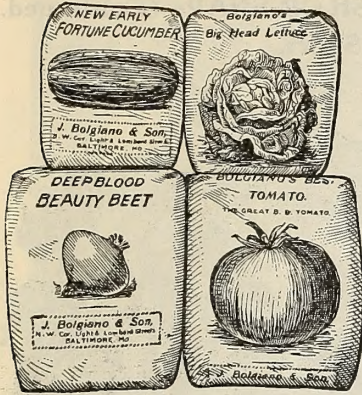 NEW EARLY
FORTUNE CUCUMBER
J. Bolgiano & Son,
N. W. Cor. Light & Lombard Streets
BALTIMORE, MD
Bolgiano's
Big Head Lettuce
DEEP BLOOD
BEAUTY BEET
J. Bolgiano & Son,
N. W. Cor. Light & Lombard Streets
BALTIMORE, MD
BOLGIANO'S BES
TOMATO.
THE GREAT B. B. TOMATO.
J. Bolgiano & Son